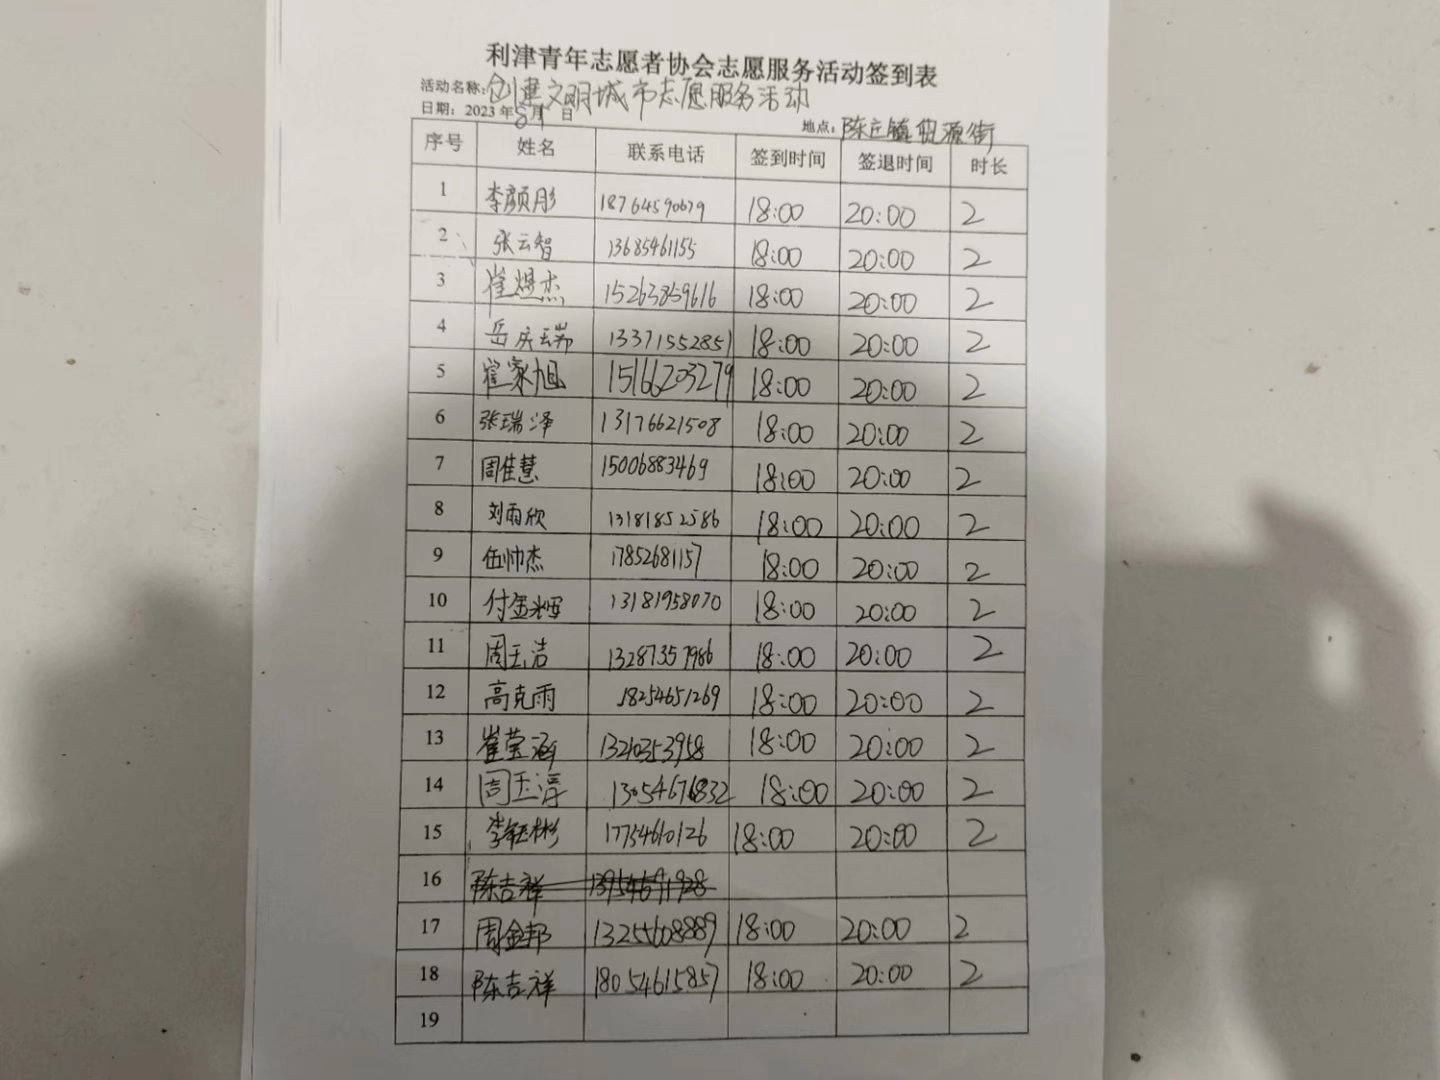 利津青年志愿者协会志愿服务活动签到表
活动名称:创建文明城市志愿服务活动
日期: 2023年8月 日
地点: 陈庄镇 源街
序号 姓名 联系电话 签到时间 签退时间 时长
1 李颜彤 18764590679 18:00 20:00 2
2 张云智 13685461155 18:00 20:00 2
3 崔煜杰 15263859616 18:00 20:00 2
4 岳庆瑞 13371552851 18:00 20:00 2
5 崔家旭 15166203279 18:00 20:00 2
6 张瑞泽 13176621508 18:00 20:00 2
7 周佳慧 15006883469 18:00 20:00 2
8 刘雨欣 13181852586 18:00 20:00 2
9 伍帅杰 17852681157 18:00 20:00 2
10 付金辉 13181958070 18:00 20:00 2
11 周玉洁 13287357986 18:00 20:00 2
12 高克雨 18254651269 18:00 20:00 2
13 崔莹涵 13210353958 18:00 20:00 2
14 周玉淳 13054676832 18:00 20:00 2
15 李钰彬 17754610126 18:00 20:00 2
16 陈吉祥 13954691928
17 周金邦 13255608889 18:00 20:00 2
18 陈吉祥 18054615857 18:00 20:00 2
19